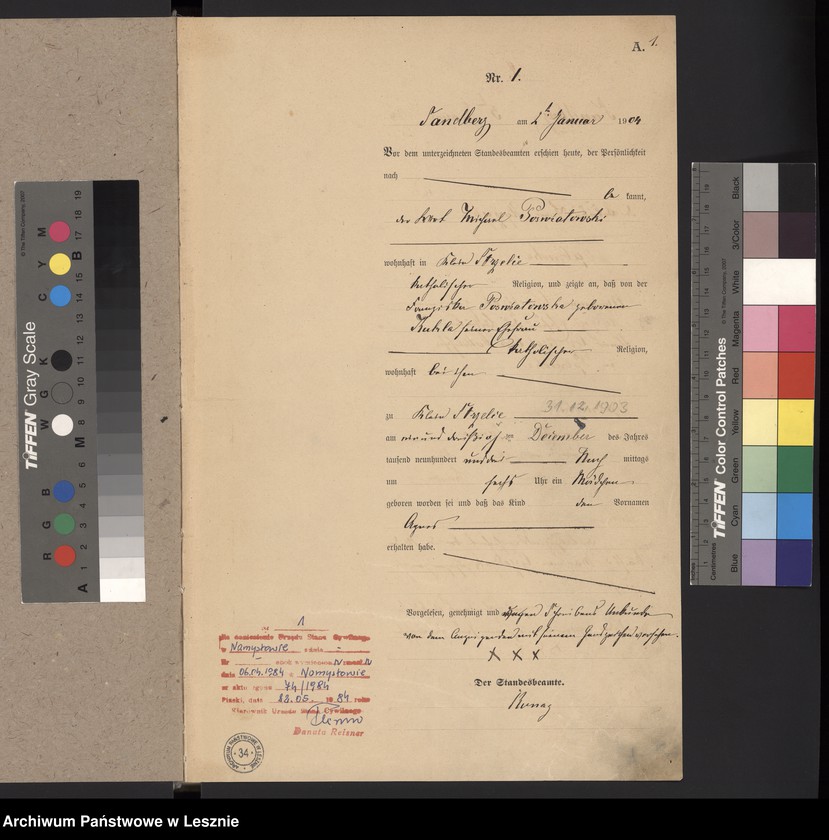 A. 1.
Nr. 1.
Sandberg am 2ten Januar 1904
Vor dem unterzeichneten Standesbeamten erschien heute, der Persönlichkeit
nach
be kannt,
der Wirt Michael Poswiatowski
wohnhaft in Klein
katholischer Religion, und zeigte an, daß von der
Franziska Poswiatowska geborenen
Kukla seiner Ehefrau
katholischer Religion,
wohnhaft bei ihm
zu Klein
31.12.1903
am einunddreißigsten Dezember des Jahres
tausend neunhundert und drei Nach mittags
um sechs Uhr ein Mädchen
geboren worden sei und daß das Kind den Vornamen
Agnes
erhalten habe.
Vorgelesen, genehmigt und wegen Schreibens Unkunde
von dem Anzeigenden mit seinem Handzeichen versehen.
X X X
Der Standesbeamte.
1
Urzędu Stanu Cywilnego
w Namysłowie
Nr
dnia 06.04.1984 Namysłowie
nr aktu 74/1984
Piaski, dnia 22.05. 1984 roku
Kierownik Urzędu Stanu Cywilnego
Danuta Reszner
ARCHIWUM PAŃSTWOWE W LESZNIE
34
TIFFEN Gray Scale
© The Tiffen Company, 2007
R G B W G K C Y M
A 1 2 3 4 5 6 M 8 9 10 11 12 13 14 15 B 17 18 19
TIFFEN Color Control Patches
© The Tiffen Company, 2007
Centimetres
Blue Cyan Green Yellow Red Magenta White 3/Color Black
Archiwum Państwowe w Lesznie